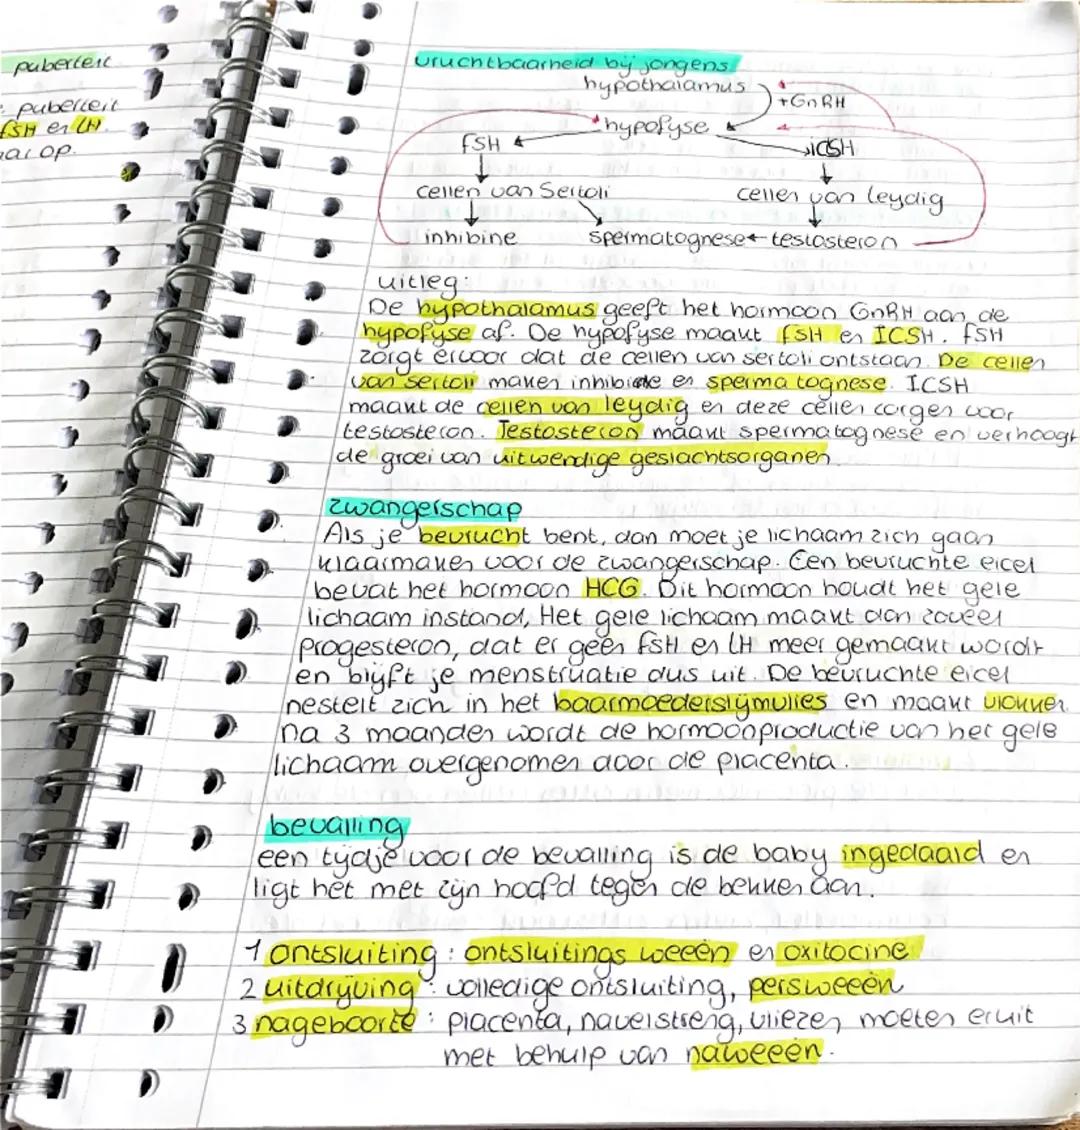 puberteit
: puberteit
FSH en LH.
aar op.
vruchtbaarheid bij jongens
hypothalamus
+GnRH
hypofyse
FSH
ICSH
cellen van Sertoli
cellen van leydig
inhibine
spermatognese
testosteron
uitleg:
De hypothalamus geeft het hormoon GnRH aan de
hypofyse af. De hypofyse maakt FSH en ICSH. FSH
zorgt ervoor dat de cellen van sertoli ontstaan. De cellen
van sertoli maken inhibine en sperma tognese. ICSH
maakt de cellen van leydig en deze cellen zorgen voor
testosteron. Testosteron maakt spermatognese en verhoogt
de groei van uitwendige geslachtsorganen.
zwangerschap
Als je bevrucht bent, dan moet je lichaam zich gaan
klaarmaken voor de zwangerschap. Een bevruchte eicel
bevat het hormoon HCG. Dit hormoon houdt het gele
lichaam instand, Het gele lichaam maakt dan zoveel
progesteron, dat er geen FSH en LH meer gemaakt wordt
en blijft je menstruatie dus uit. De bevruchte eicel
nestelt zich in het baarmoederslijmvlies en maakt vlokken.
na 3 maanden wordt de hormoonproductie van het gele
lichaam overgenomen door de placenta.
bevalling
een tijdje voor de bevalling is de baby ingedaald en
ligt het met zijn hoofd tegen de bekken aan.
1 ontsluiting : ontsluitings weeën en oxitocine
2 uitdrijving : volledige ontsluiting, persweeën
3 nageboorte : placenta, navelstreng, vliezen moeten eruit
met behulp van naweeën.